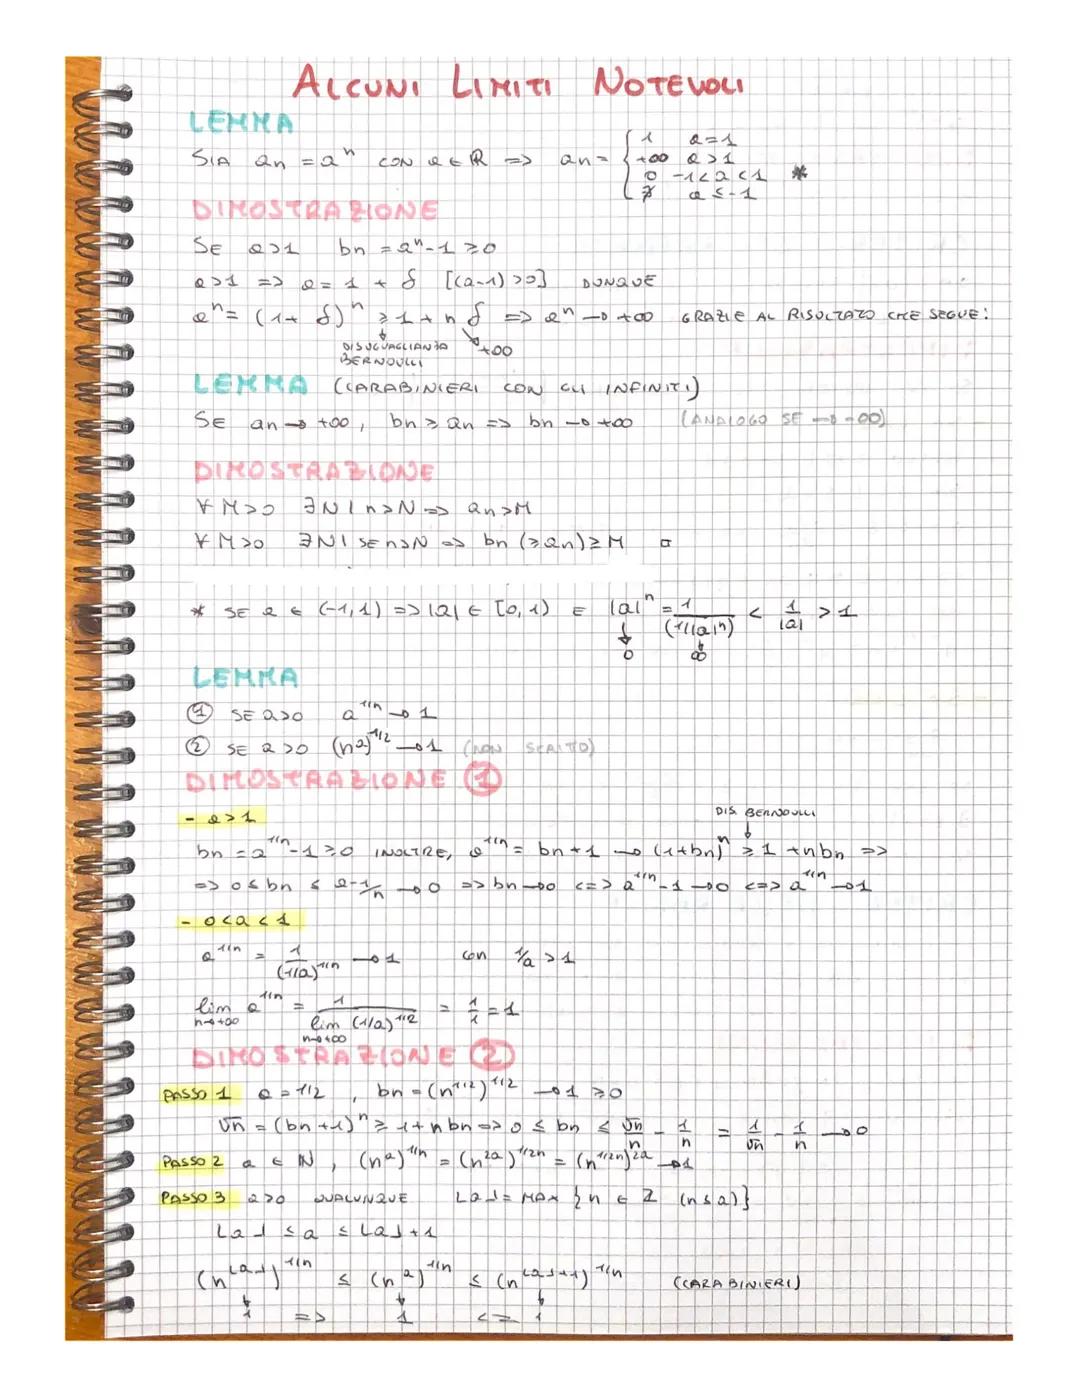 ALCUNI LIMITI NOTEVOLI
LEMMA
SIA an = a^n CON a ∈ R => an = { 1 a=1
+∞ a>1
0 -1<a<1 *
∄ a≤-1
DIMOSTRAZIONE
SE a>1 bn = a^n-1 ≥0
a>1 => a = 1 + δ [(a-1)>0] DUNQUE
a^n = (1+ δ)^n ≥ 1+n δ => a^n → +∞ GRAZIE AL RISULTATO CHE SEGUE:
DISUGUAGLIANZA +∞
BERNOULLI
LEMMA (CARABINIERI CON GLI INFINITI)
SE an → +∞, bn ≥ an => bn → +∞ (ANALOGO SE → -∞)
DIMOSTRAZIONE
∀ M>0 ∃N | n>N => an>M
∀ M>0 ∃N | SE n>N => bn (≥an) ≥ M □
* SE a ∈ (-1,1) => |a| ∈ [0,1) E |a|^n = 1/(1/|a|^n) < 1/|a| > 1
↓ 0 ↓ ∞
LEMMA
① SE a>0 a^1/n → 1
② SE a>0 (n^a)^1/2 → 1 (NON SCRITTO)
DIMOSTRAZIONE ①
- a>1
DIS. BERNOULLI
bn = a^1/n -1 ≥0 INOLTRE, a^1/n = bn+1 → (1+bn)^n ≥ 1 +nbn =>
=> 0≤bn ≤ a-1/n → 0 => bn→0 <=> a^1/n -1 →0 <=> a^1/n →1
- 0<a<1
a^1/n = 1/(1/a)^1/n → 1 con 1/a >1
lim n→+∞ a^1/n = 1/lim n→+∞ (1/a)^1/2 = 1/1 = 1
DIMOSTRAZIONE ②
PASSO 1 a = 1/2 , bn = (n^1/2)^1/2 → 1 ≥0
√n = (bn+1)^n ≥ 1+n bn => 0 ≤ bn ≤ √n/n - 1/n = 1/√n - 1/n → 0
PASSO 2 a ∈ N , (n^a)^1/n = (n^2a)^1/2n = (n^1/2n)^2a → 1
PASSO 3 a>0 QUALUNQUE ⌊a⌋ = MAX {n ∈ Z (n≤a)}
⌊a⌋ ≤ a ≤ ⌊a⌋+1
(n^⌊a⌋)^1/n ≤ (n^a)^1/n ≤ (n^⌊a⌋+1)^1/n (CARABINIERI)
↓ ↓ ↓
1 => 1 <= 1